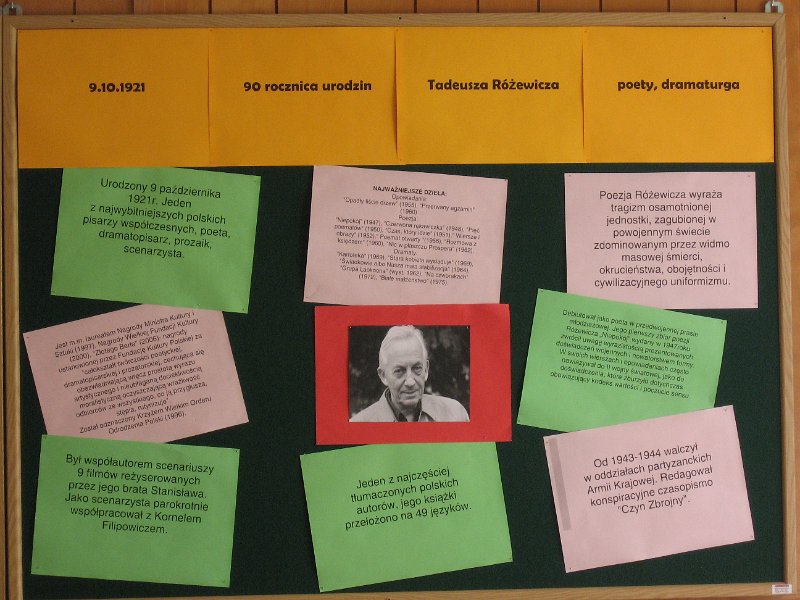 9.10.1921
90 rocznica urodzin
Tadeusza Różewicza
poety, dramaturga
Urodzony 9 października
1921r. Jeden
z najwybitniejszych polskich
pisarzy współczesnych, poeta,
dramatopisarz, prozaik,
scenarzysta.
NAJWAŻNIEJSZE DZIEŁA:
Opowiadania
"Opadły liście drzew" (1955), "Przerwany egzamin"
(1960)
Poezja
"Niepokój" (1947), "Czerwona rękawiczka" (1948), "Pięć
poematów" (1950), "Czas, który idzie" (1951), "Wiersze i
obrazy" (1952), "Poemat otwarty" (1956), "Rozmowa z
księciem" (1960), "Nic w płaszczu Prospera" (1962),
Dramaty
"Kartoteka" (1960), "Stara kobieta wysiaduje" (1969),
"Świadkowie albo Nasza mała stabilizacja" (1964),
"Grupa Laokoona" (wyst. 1962), "Na czworakach"
(1972), "Białe małżeństwo" (1975)
Poezja Różewicza wyraża
tragizm osamotnionej
jednostki, zagubionej w
powojennym świecie
zdominowanym przez widmo
masowej śmierci,
okrucieństwa, obojętności i
cywilizacyjnego uniformizmu.
Jest m.in. laureatem Nagrody Ministra Kultury i
Sztuki (1997), Nagrody Wielkiej Fundacji Kultury
(2000), "Złotego Berła" (2006), nagrody
ustanowionej przez Fundację Kultury Polskiej za
"całokształt twórczości poetyckiej,
dramatopisarskiej i prozatorskiej, cechującą się
obezwładniającą wręcz prostotą wyrazu
artystycznego i nieubłaganą dociekliwością
moralistyczną, oczyszczającą wrażliwość
odbiorców ze wszystkiego, co ją przygłusza,
stępia, rutynizuje".
Został odznaczony Krzyżem Wielkim Orderu
Odrodzenia Polski (1996).
Debiutował jako poeta w przedwojennej prasie
młodzieżowej. Jego pierwszy zbiór poezji
Różewicza „Niepokój" wydany w 1947 roku
zwrócił uwagę wyrazistością prezentowanych
doświadczeń wojennych i nowatorstwem formy.
W swoich wierszach i opowiadaniach często
nawiązywał do II wojny światowej, jako do
doświadczenia, które zburzyło dotychczas
obowiązujący kodeks wartości i poczucie sensu
Był współautorem scenariuszy
9 filmów reżyserowanych
przez jego brata Stanisława.
Jako scenarzysta parokrotnie
współpracował z Kornelem
Filipowiczem.
Jeden z najczęściej
tłumaczonych polskich
autorów, jego książki
przełożono na 49 języków.
Od 1943-1944 walczył
w oddziałach partyzanckich
Armii Krajowej. Redagował
konspiracyjne czasopismo
"Czyn Zbrojny".